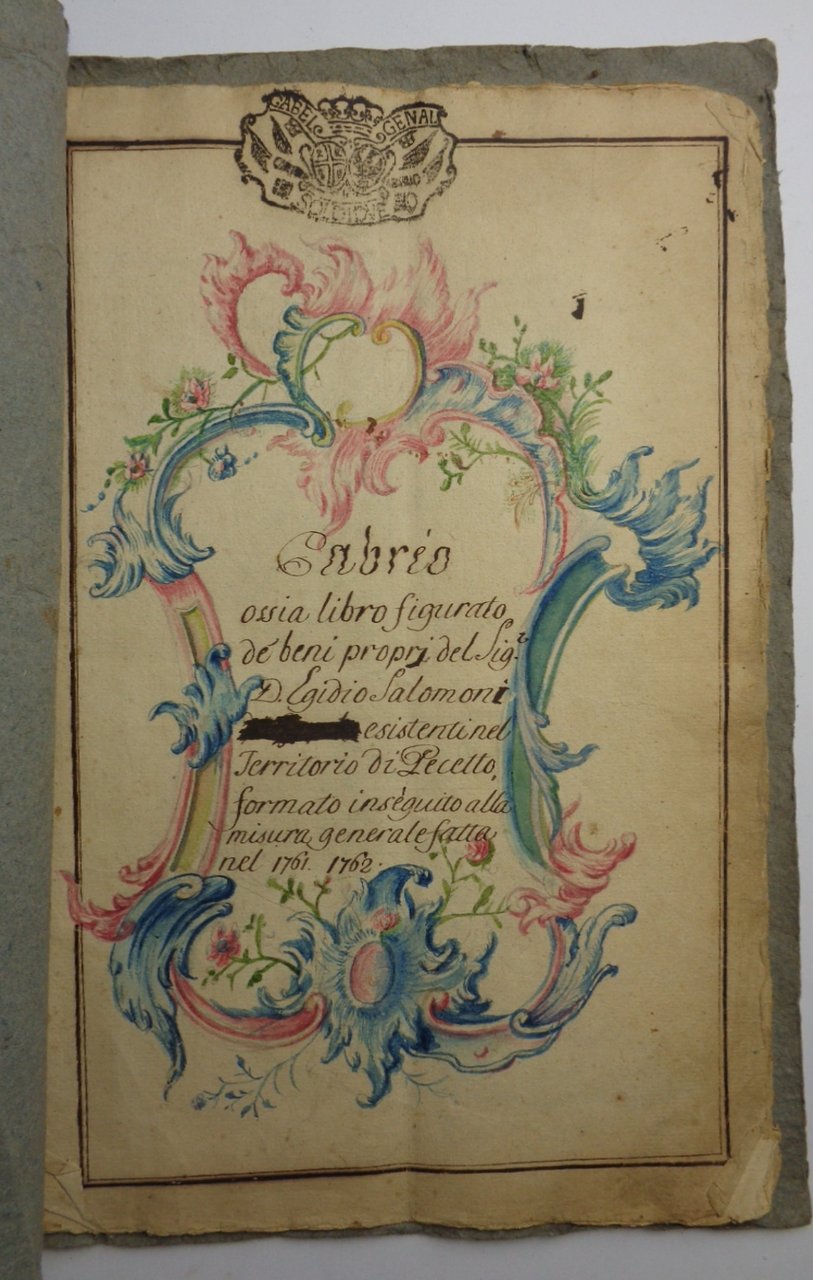 GABEL GENAL
Cabréo
ossia libro figurato
de beni proprj del Sig.r
D. Egidio Salomoni
esistenti nel
Territorio di Pecetto,
formato inséguito alla
misura generale fatta
nel 1761. 1762.